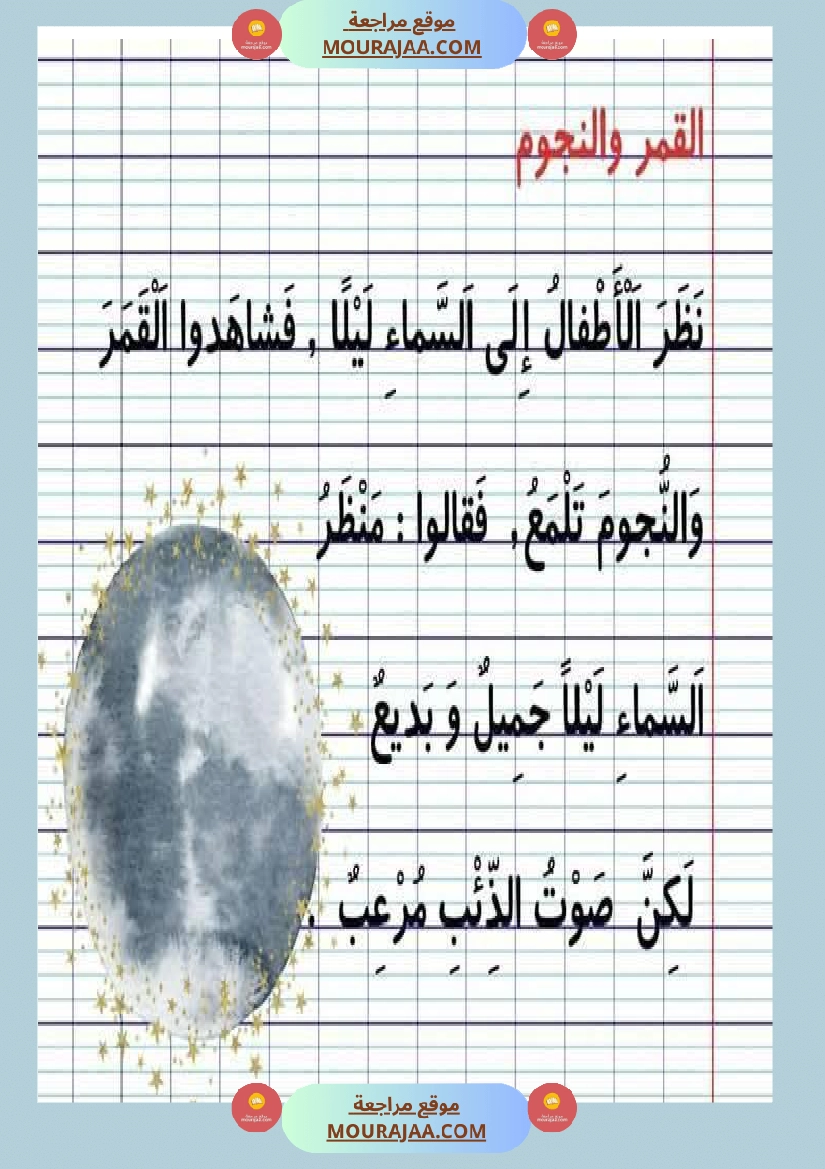 موقع مراجعة
MOURAJAA.COM
القمر والنجوم
نَظَرَ اَلْأَطْفالُ إِلَى اَلسَّماءِ لَيْلًا , فَشاهَدوا اَلْقَمَرَ
وَالنُّجومَ تَلْمَعُ, فَقالوا : مَنْظَرُ
اَلسَّماءِ لَيْلاً جَمِيلٌ وَ بَديعٌ
لَكِنَّ صَوْتُ الذِّئْبِ مُرْعِبٌ .
موقع مراجعة
MOURAJAA.COM